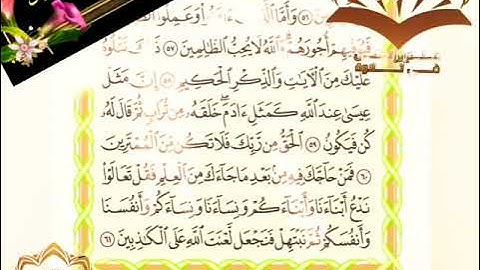 ٥٦ وَأَمَّا الَّذِينَ ءَامَنُوا وَعَمِلُوا
فَيُوَفِّيهِمْ أُجُورَهُمْ وَاللَّهُ لَا يُحِبُّ الظَّالِمِينَ ٥٧ ذَٰلِكَ نَتْلُوهُ
عَلَيْكَ مِنَ الْآيَاتِ وَالذِّكْرِ الْحَكِيمِ ٥٨ إِنَّ مَثَلَ
عِيسَىٰ عِندَ اللَّهِ كَمَثَلِ ءَادَمَ خَلَقَهُ مِن تُرَابٍ ثُمَّ قَالَ لَهُ
كُن فَيَكُونُ ٥٩ الْحَقُّ مِن رَّبِّكَ فَلَا تَكُن مِّنَ الْمُمْتَرِينَ
٦٠ فَمَنْ حَاجَّكَ فِيهِ مِن بَعْدِ مَا جَاءَكَ مِنَ الْعِلْمِ فَقُلْ تَعَالَوْا
نَدْعُ أَبْنَاءَنَا وَأَبْنَاءَكُمْ وَنِسَاءَنَا وَنِسَاءَكُمْ وَأَنفُسَنَا
وَأَنفُسَكُمْ ثُمَّ نَبْتَهِلْ فَنَجْعَل لَّعْنَتَ اللَّهِ عَلَى الْكَاذِبِينَ ٦١